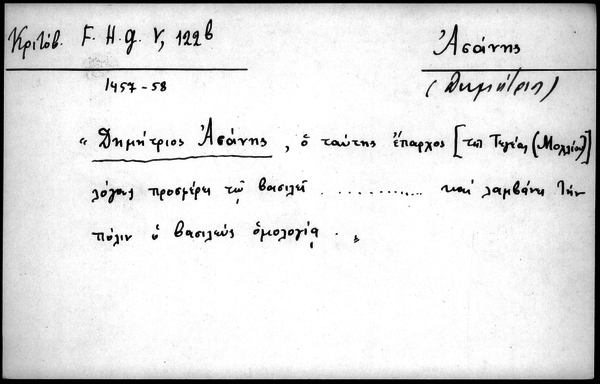 Κριτόβ. F. H. g. V, 122b
Ἀσάνης
(Δημήτριος)
1457-58
"Δημήτριος Ἀσάνης, ὁ ταύτης ἔπαρχος [τῆς Τεγέας (Μοχλίου)]
λόγους προσφέρει τῷ βασιλεῖ ............ καὶ λαμβάνει τὴν
πόλιν ὁ βασιλεὺς ὁμολογίᾳ. "